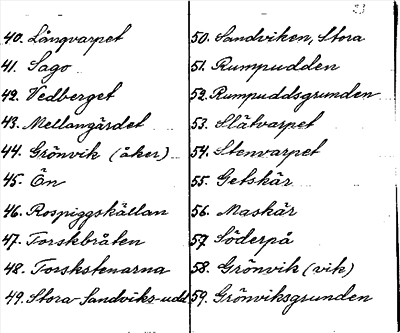 40. Långvarpet
41. Sago
42. Vedberget
43. Mellangärdet
44. Grönvik (åker)
45. Ön
46. Rospiggskällan
47. Torskbråten
48. Torskstenarna
49. Stora Sandviks-udd
50. Sandviken, Stora
51. Rumpudden
52. Rumpuddsgrunden
53. Slätvarpet
54. Stenvarpet
55. Getskär
56. Maskär
57. Söderpå
58. Grönvik (vik)
59. Grönviksgrunden